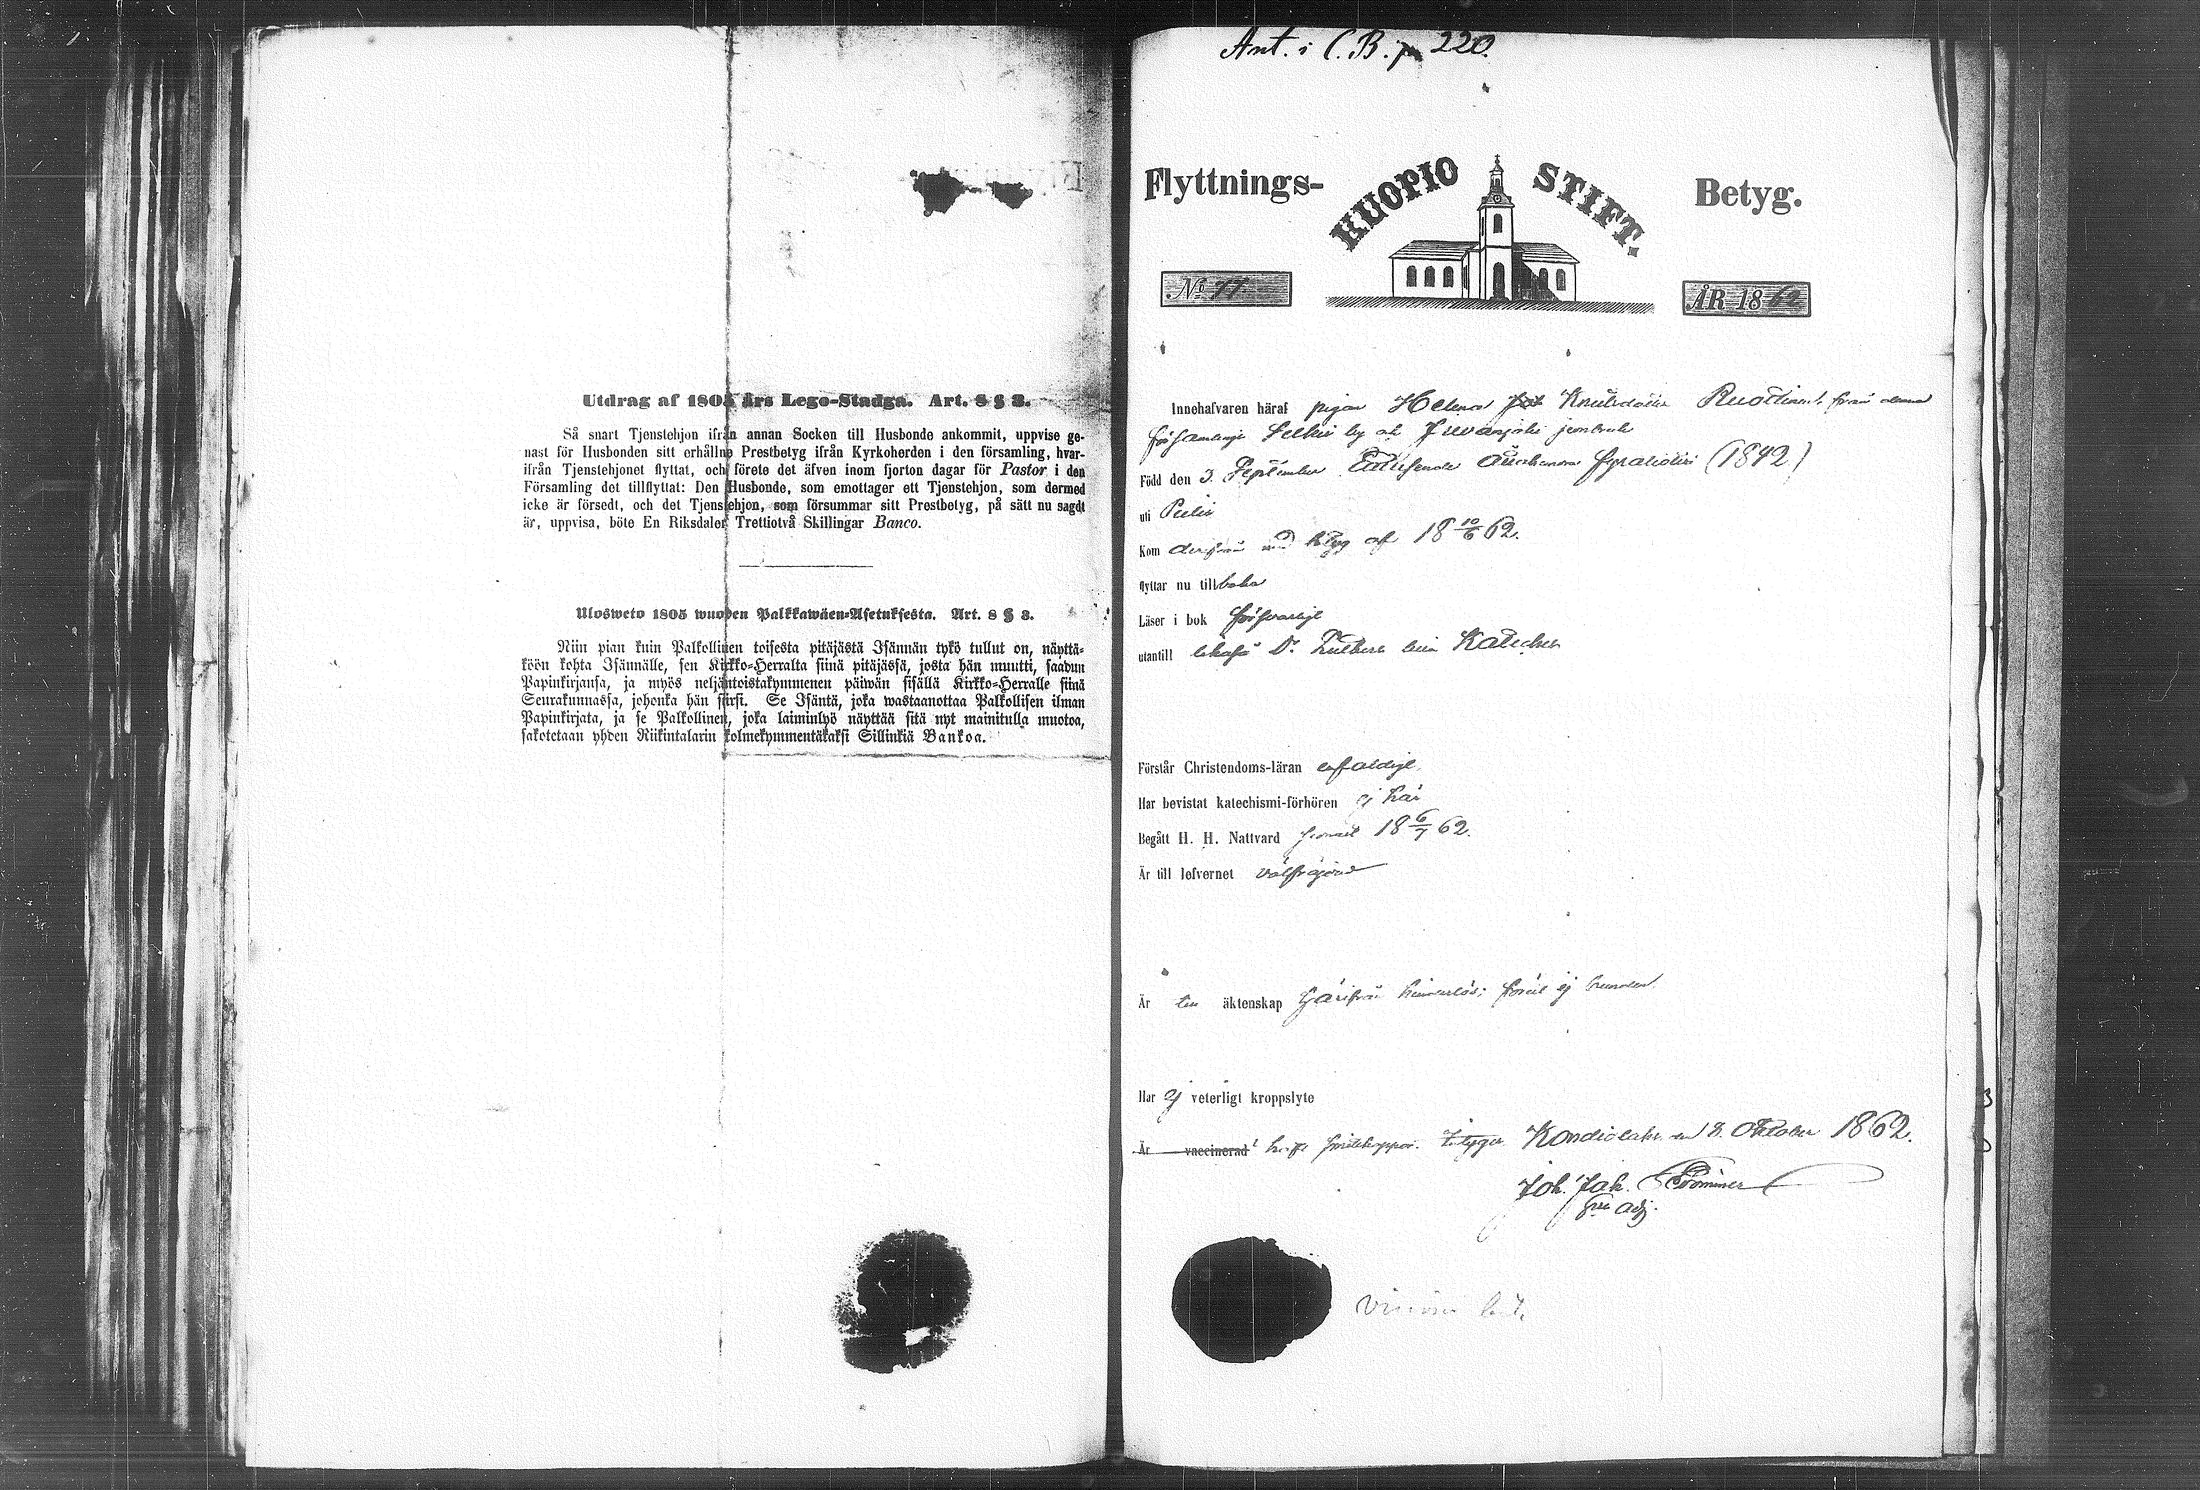 Utdrag af 1805 års Lego-Stadga. Art. 8 § 3.
Så snart Tjenstehjon ifrån annan Socken till Husbonde ankommit, uppvise ge-
nast för Husbonden sitt erhållne Prestbetyg ifrån Kyrkoherden i den församling, hvar-
ifrån Tjenstehjonet flyttat, och förete det äfven inom fjorton dagar för Pastor i den
Församling det tillflyttat: Den Husbonde, som emottager ett Tjenstehjon, som dermed
icke är försedt, och det Tjenstehjon, som försummar sitt Prestbetyg, på sätt nu sagdt
är, uppvisa, böte En Riksdaler Trettiotvå Skillingar Banco.
Ulosweto 1805 wuoden Palkkawäen-Asetuksesta. Art. 8 § 3.
Niin pian kuin Palkollinen toisesta pitäjästä Isännän tykö tullut on, näyttä-
köön kohta Isännälle, sen Kirkko-Herralta siinä pitäjässä, josta hän muutti, saadun
Papinkirjansa, ja myös neljäntoistakymmenen päiwän sisällä Kirkko-Herralle siinä
Seurakunnassa, johonka hän siirsi. Se Isäntä, joka wastaanottaa Palkollisen ilman
Papinkirjata, ja se Palkollinen, joka laiminlyö näyttää sitä nyt mainitulla muotoa,
sakotetaan yhden Riikintalarin kolmekymmentäkaksi Sillinkiä Bankoa.
Ant. i C.B. p. 220.
Flyttnings- KUOPIO STIFT. Betyg.
No 77. ÅR 1862
Innehafvaren häraf pigan Helena Knutsdotter från denna
församlings Selkie by och jernbruk
Född den 3 September Adertonhundra fyratiotvå (1842)
uti
Kom derifrån med betyg af 18 10/6 62.
flyttar nu tillbaka
Läser i bok försvarligt
utantill likaså Dr Lutheri lilla Kateches
Förstår Christendoms-läran enfaldigt
Har bevistat katechismi-förhören ej här
Begått H. H. Nattvard senast 18 6/7 62.
Är till lefvernet välfrejdad
Är till äktenskap härifrån hinderlös;
Har ej veterligt kroppslyte
Är vaccinerad haft Kondiolaks den 8 Oktober 1862.
Joh. Jak.
adj.